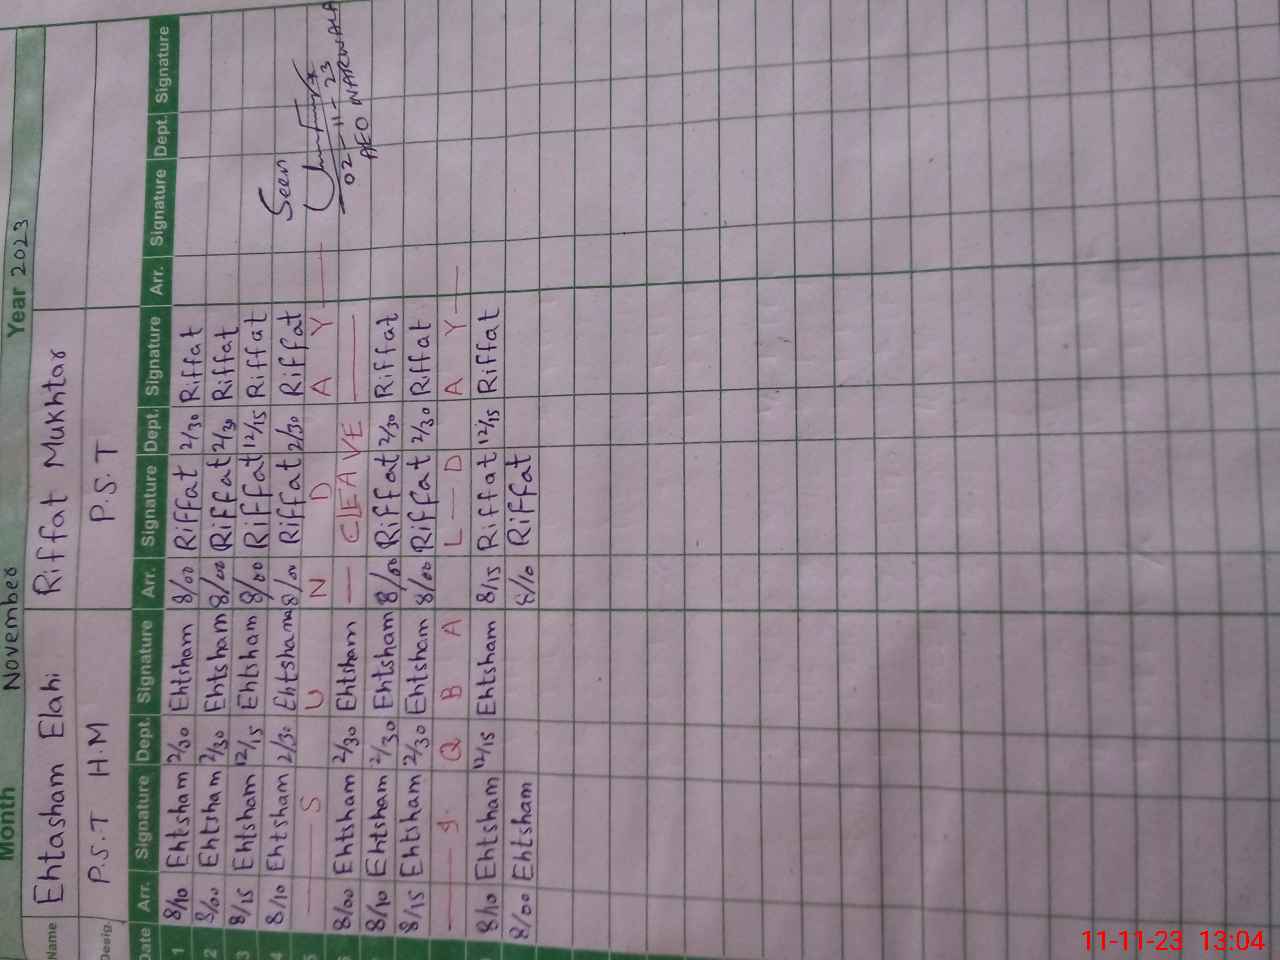 Month November Year 2023
Name Ehtasham Elahi Riffat Mukhtar
Desig. P.S.T H.M P.S.T
Date Arr. Signature Dept. Signature Arr. Signature Dept. Signature Arr. Signature Dept. Signature
1 8/10 Ehtsham 2/30 Ehtsham 8/00 Riffat 2/30 Riffat
2 8/00 Ehtsham 2/30 Ehtsham 8/00 Riffat 2/30 Riffat
3 8/15 Ehtsham 12/15 Ehtsham 8/00 Riffat 12/15 Riffat
4 8/10 Ehtsham 2/30 Ehtsham 8/00 Riffat 2/30 Riffat Seen
5 S U N D A Y
02-11-23
6 8/00 Ehtsham 2/30 Ehtsham CLEAVE AEO NARWALA
8/10 Ehtsham 2/30 Ehtsham 8/00 Riffat 2/30 Riffat
8/15 Ehtsham 2/30 Ehtsham 8/00 Riffat 2/30 Riffat
9. Q B A L D A Y
8/10 Ehtsham 12/15 Ehtsham 8/15 Riffat 12/15 Riffat
8/00 Ehtsham 8/10 Riffat
11-11-23 13:04